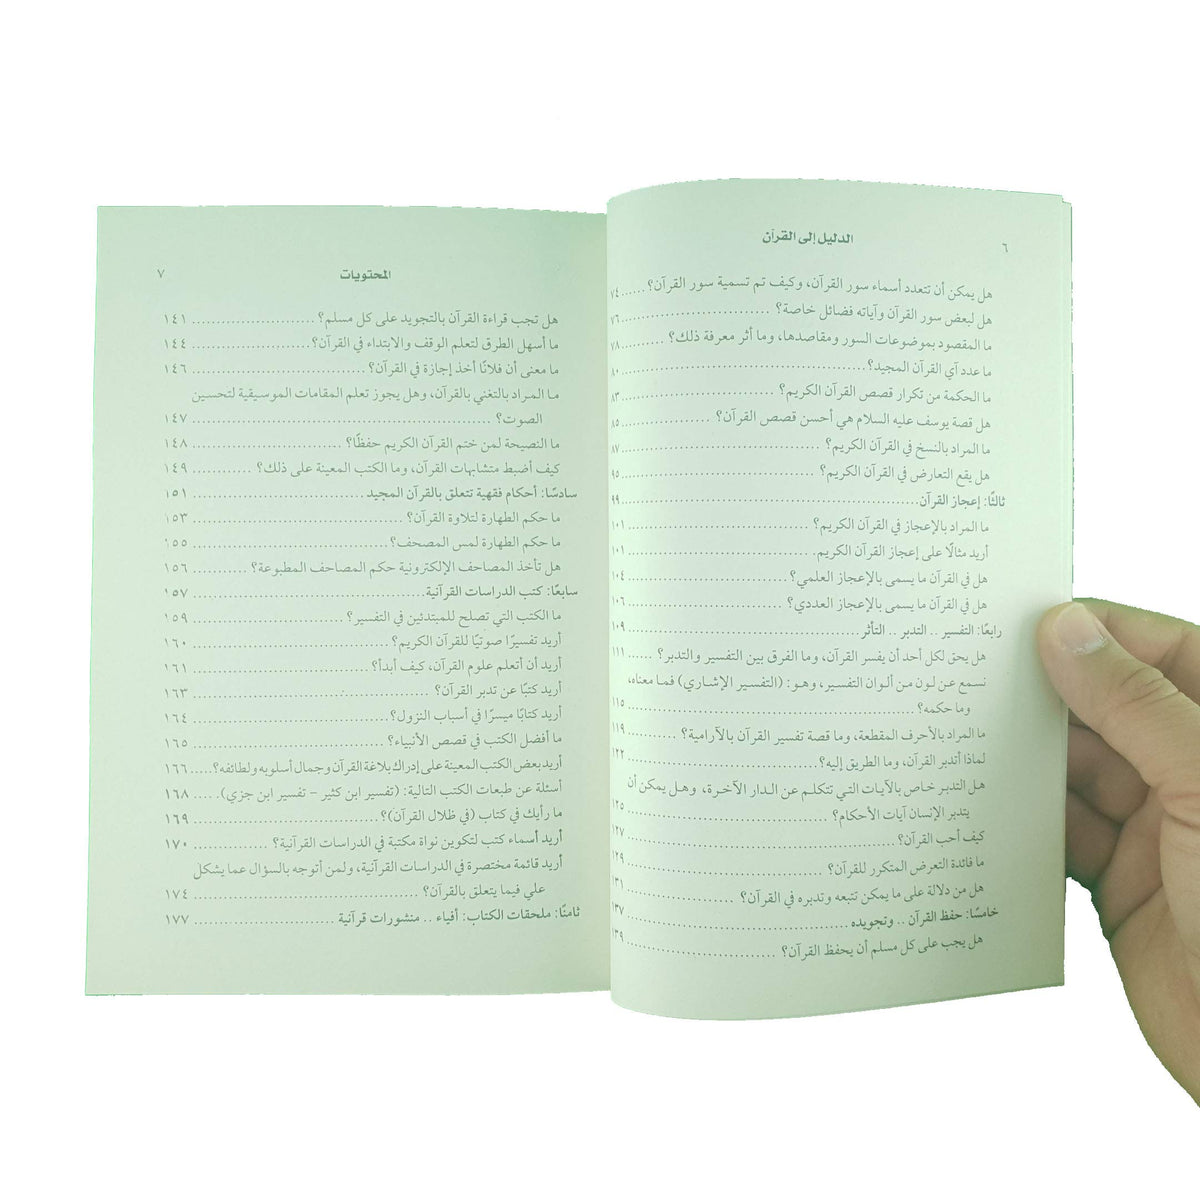 ٦
الدليل إلى القرآن
هل يمكن أن تتعدد أسماء سور القرآن، وكيف تم تسمية سور القرآن؟ ...... ٧٤
هل لبعض سور القرآن وآياته فضائل خاصة؟ ...................... ٧٦
ما المقصود بموضوعات السور ومقاصدها، وما أثر معرفة ذلك؟ .......... ٧٨
ما عدد آي القرآن المجيد؟ ...................................... ٨٠
ما الحكمة من تكرار قصص القرآن الكريم؟ ........................ ٨٣
هل قصة يوسف عليه السلام هي أحسن قصص القرآن؟ ................ ٨٥
ما المراد بالنسخ في القرآن الكريم؟ .............................. ٨٧
هل يقع التعارض في القرآن الكريم؟ .............................. ٩٥
ثالثًا: إعجاز القرآن ............................................ ٩٩
ما المراد بالإعجاز في القرآن الكريم؟ ............................ ١٠١
أريد مثالًا على إعجاز القرآن الكريم. ............................ ١٠١
هل في القرآن ما يسمى بالإعجاز العلمي؟ .......................... ١٠٤
هل في القرآن ما يسمى بالإعجاز العددي؟ .......................... ١٠٦
رابعًا: التفسير .. التدبر .. التأثر .............................. ١٠٩
هل يحق لكل أحد أن يفسر القرآن، وما الفرق بين التفسير والتدبر؟ ...... ١١١
نسمع عن لون من ألوان التفسير، وهو: (التفسير الإشاري) فما معناه،
وما حكمه؟ .................................................. ١١٥
ما المراد بالأحرف المقطعة، وما قصة تفسير القرآن بالآرامية؟ .......... ١١٩
لماذا أتدبر القرآن، وما الطريق إليه؟ ............................ ١٢٢
هل التدبر خاص بالآيات التي تتكلم عن الدار الآخرة، وهل يمكن أن
يتدبر الإنسان آيات الأحكام؟ .................................. ١٢٥
كيف أحب القرآن؟ ............................................ ١٢٧
ما فائدة التعرض المتكرر للقرآن؟ ................................ ١٢٩
هل من دلالة على ما يمكن تتبعه وتدبره في القرآن؟ .................. ١٣١
خامسًا: حفظ القرآن .. وتجويده ................................ ١٣٧
هل يجب على كل مسلم أن يحفظ القرآن؟ .......................... ١٣٩
المحتويات
٧
هل تجب قراءة القرآن بالتجويد على كل مسلم؟ .................... ١٤١
ما أسهل الطرق لتعلم الوقف والابتداء في القرآن؟ .................... ١٤٤
ما معنى أن فلانًا أخذ إجازة في القرآن؟ ............................ ١٤٦
ما المراد بالتغني بالقرآن، وهل يجوز تعلم المقامات الموسيقية لتحسين
الصوت؟ .................................................... ١٤٧
ما النصيحة لمن ختم القرآن الكريم حفظًا؟ ........................ ١٤٨
كيف أضبط متشابهات القرآن، وما الكتب المعينة على ذلك؟ .......... ١٤٩
سادسًا: أحكام فقهية تتعلق بالقرآن المجيد ........................ ١٥١
ما حكم الطهارة لتلاوة القرآن؟ .................................. ١٥٣
ما حكم الطهارة لمس المصحف؟ .................................. ١٥٥
هل تأخذ المصاحف الإلكترونية حكم المصاحف المطبوعة؟ .......... ١٥٦
سابعًا: كتب الدراسات القرآنية .................................. ١٥٧
ما الكتب التي تصلح للمبتدئين في التفسير؟ ...................... ١٥٩
أريد تفسيرًا صوتيًا للقرآن الكريم؟ ................................ ١٦٠
أريد أن أتعلم علوم القرآن، كيف أبدأ؟ ............................ ١٦١
أريد كتبًا عن تدبر القرآن؟ ...................................... ١٦٣
أريد كتابًا ميسرًا في أسباب النزول؟ .............................. ١٦٤
ما أفضل الكتب في قصص الأنبياء؟ .............................. ١٦٥
أريد بعض الكتب المعينة على إدراك بلاغة القرآن وجمال أسلوبه ولطائفه؟ ..... ١٦٦
أسئلة عن طبعات الكتب التالية: (تفسير ابن كثير – تفسير ابن جزي). ..... ١٦٨
ما رأيك في كتاب (في ظلال القرآن)؟ .............................. ١٦٩
أريد أسماء كتب لتكوين نواة مكتبة في الدراسات القرآنية؟ ............ ١٧٠
أريد قائمة مختصرة في الدراسات القرآنية، ولمن أتوجه بالسؤال عما يشكل
علي فيما يتعلق بالقرآن؟ ........................................ ١٧٤
ثامنًا: ملحقات الكتاب: أفياء .. منشورات قرآنية .................. ١٧٧